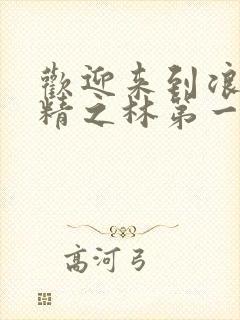 歡迎来到浪
精之林第一
高河弓